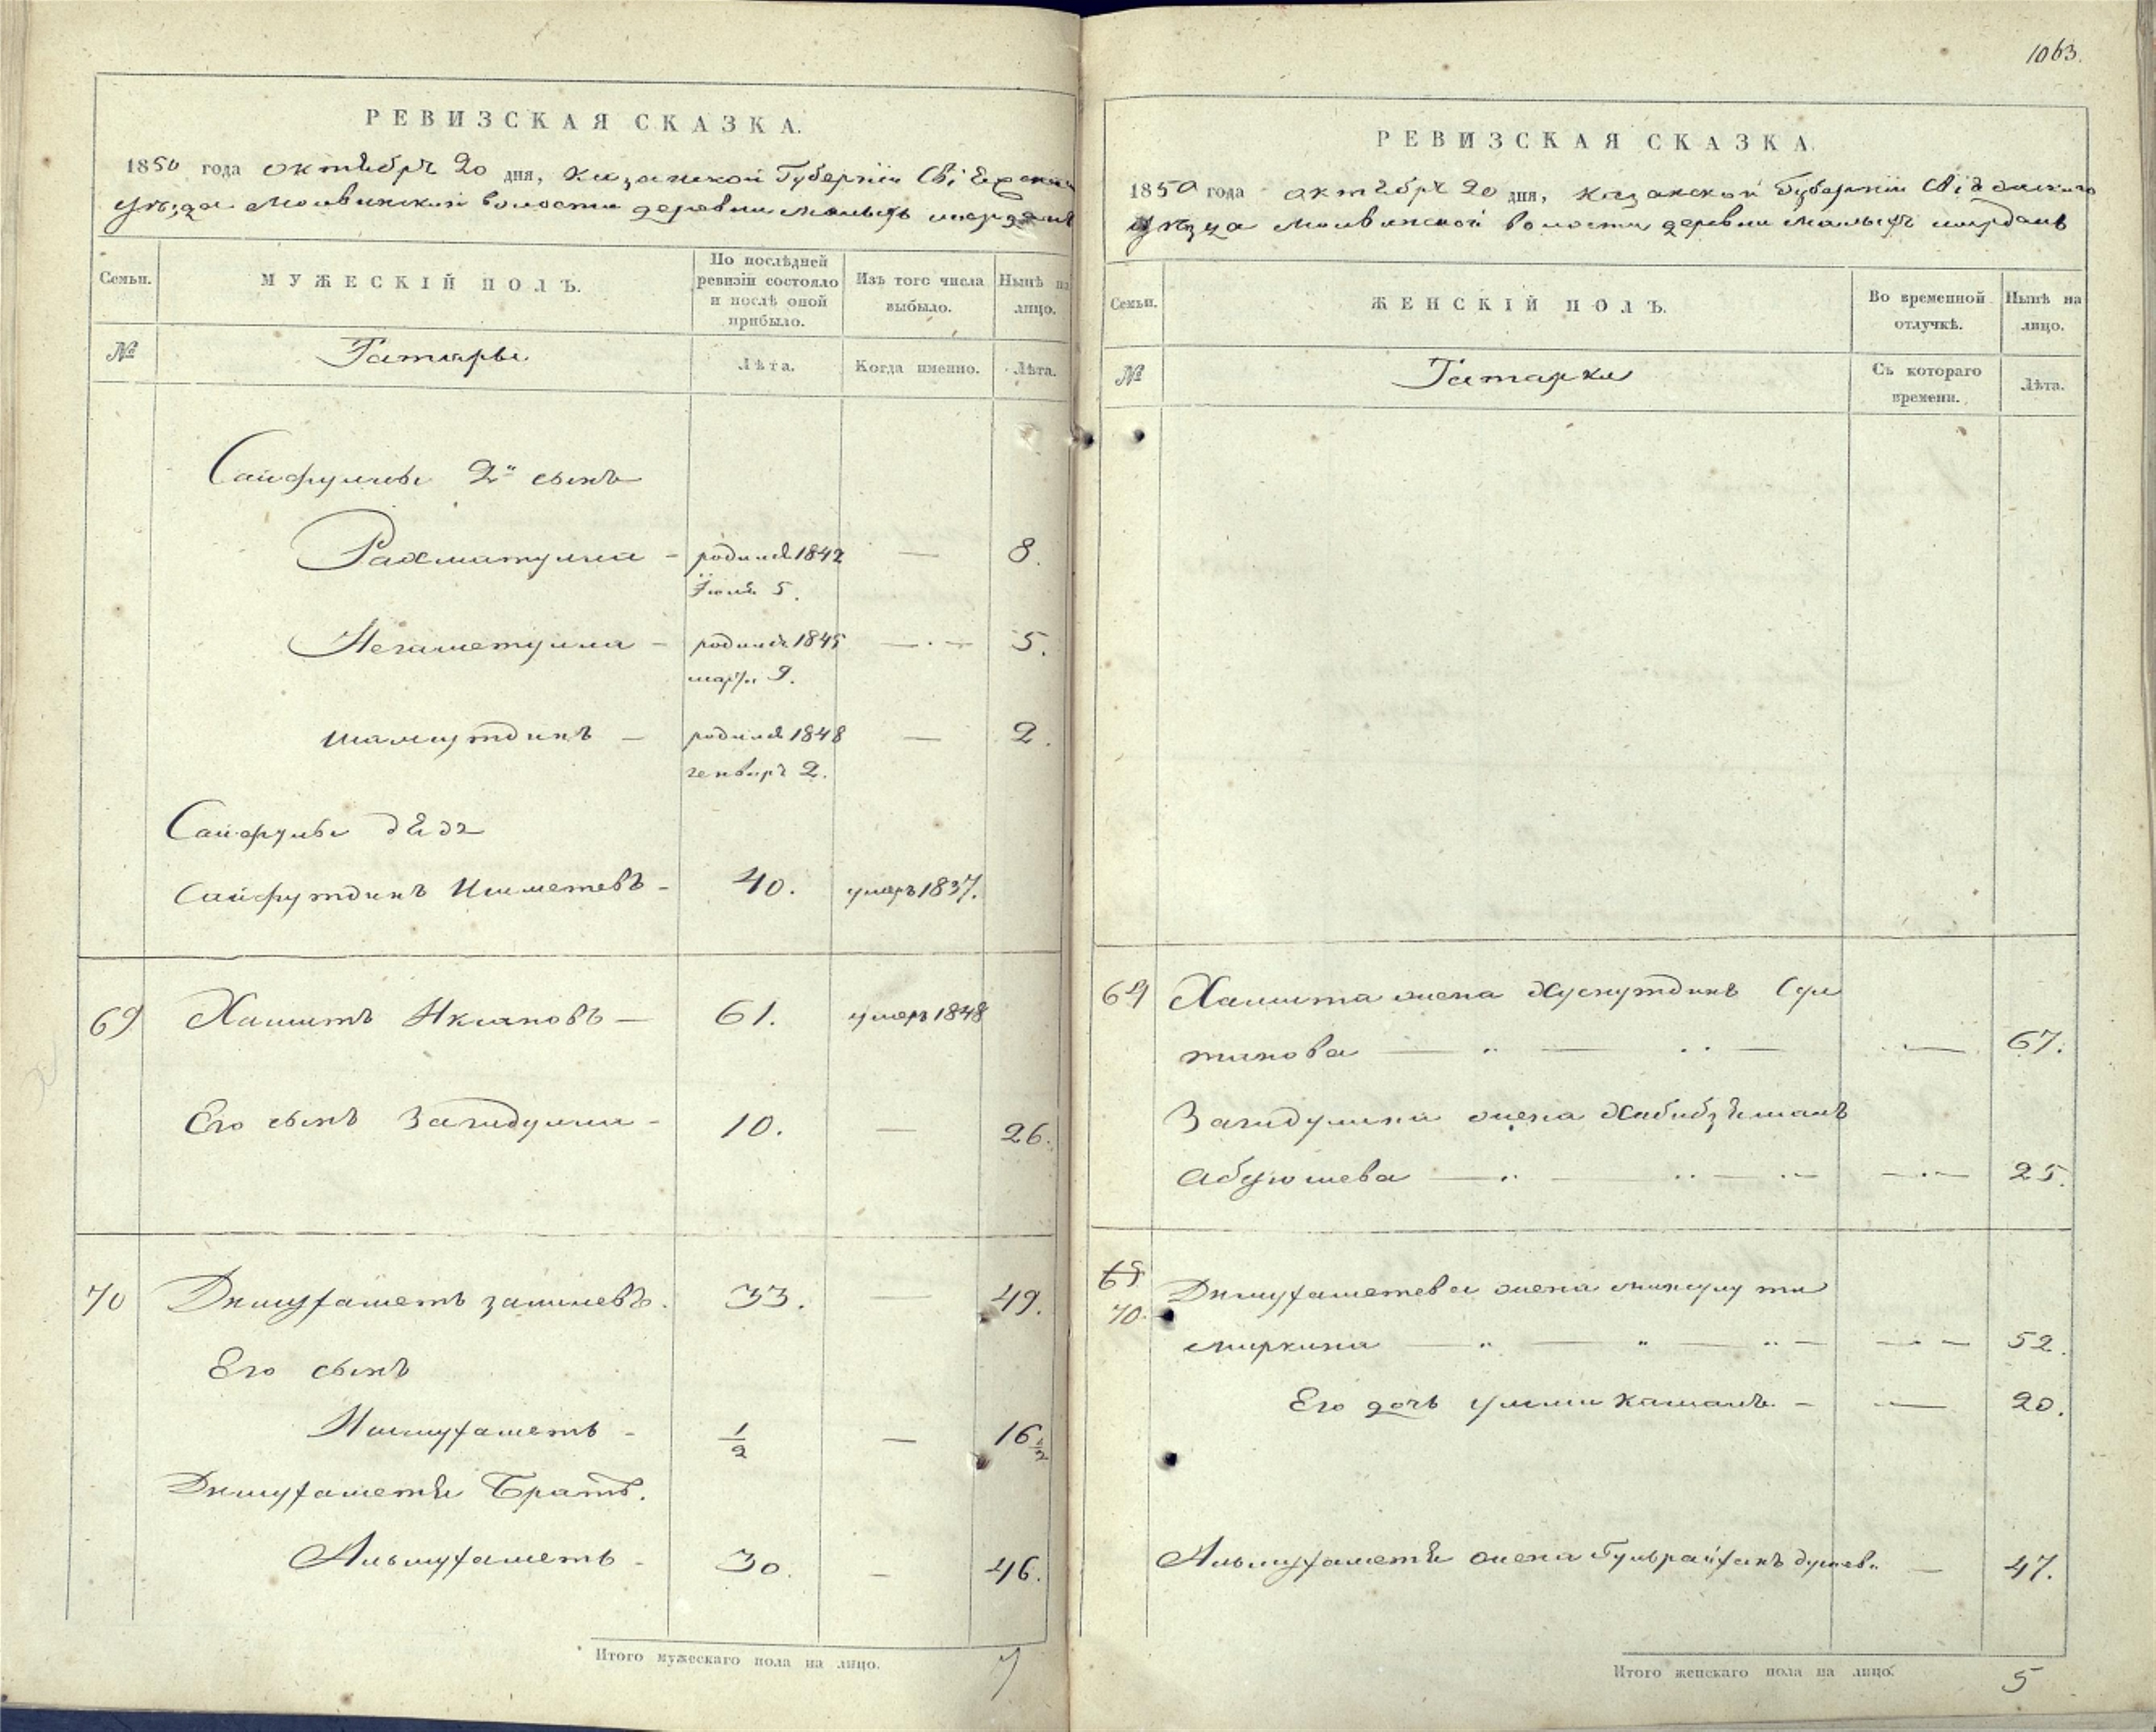 1063.
РЕВИЗСКАЯ СКАЗКА.
1850 года октября 20 дня, Казанской Губерніи
уѣзда Молвинской волости деревни Малыхъ
Семьи.
МУЖЕСКІЙ ПОЛЪ.
По послѣдней ревизіи состояло и послѣ оной прибыло.
Изъ того числа выбыло.
Нынѣ на лицо.
№
Татары
Лѣта.
Когда именно.
Лѣта.
Сайфуллы 2й сынъ
Рахматулла - родился 1842 — 8.
Іюля 5.
Негаметулла - родился 1845 — 5.
марта 9.
Шамсутдинъ - родился 1848 — 2.
генваря 2.
Сайфуллы дѣдъ
Сайфутдинъ Ишметевъ - 40. умеръ 1837.
69 Хамитъ — 61. умеръ 1848
Его сынъ Загидулла - 10. — 26.
70 Динмухаметъ 33. — 49.
Его сынъ
Нишмухаметъ - 1/2 — 16 1/2
Динмухаметя Братъ.
Альмухаметъ - 30. — 46.
Итого мужескаго пола на лицо. 7
РЕВИЗСКАЯ СКАЗКА.
1850 года октября 20 дня, Казанской Губерніи
уѣзда Молвинской волости деревни Малыхъ
Семьи.
ЖЕНСКІЙ ПОЛЪ.
Во временной отлучкѣ.
Нынѣ на лицо.
№
Татарки
Съ котораго времени.
Лѣта.
69 Хамита жена Хуснутдинъ
67.
Загидуллы жена Хабибзямалъ
Абдюшева — 25.
69
70. Динмухаметева жена
52.
Его дочь Умми Камалъ - — 20.
Альмухаметя жена — 47.
Итого женскаго пола на лицо. 5